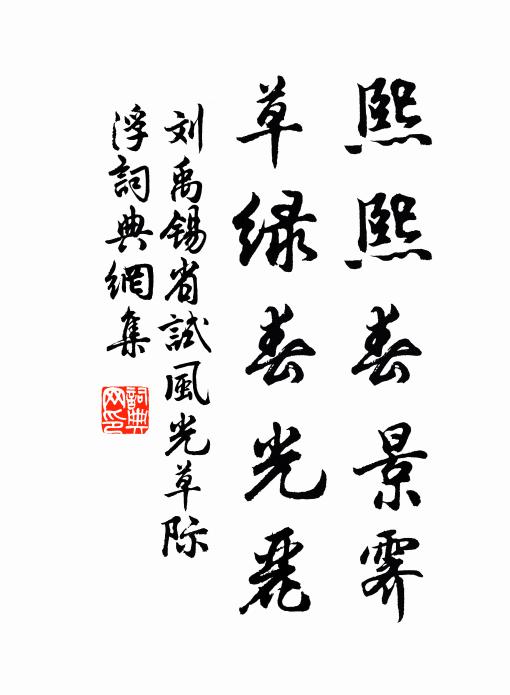 熙熙春景霽
草绿春光麗
刘禹锡省試風光草际
浮詞典網集
詞典网印